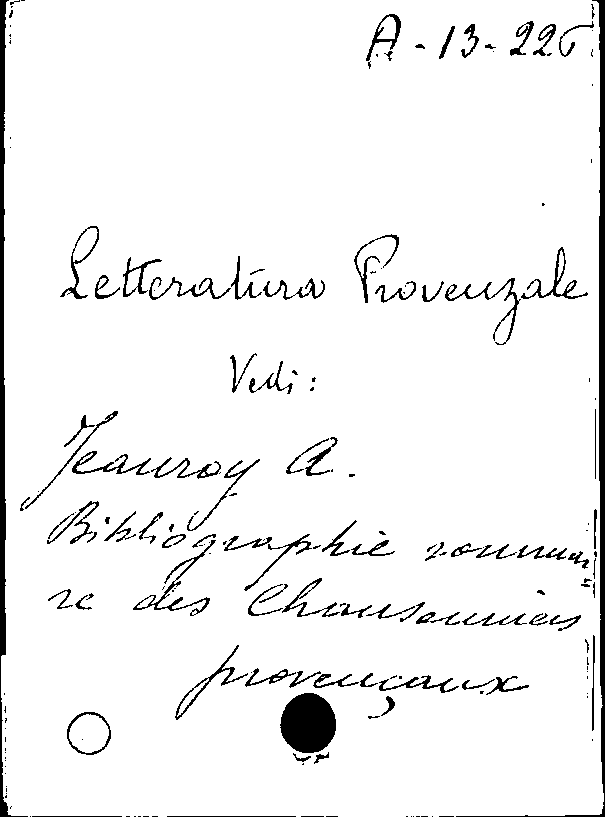 A-13-226
Letteratura Provenzale
Vedi:
Jeanroy A.
Bibliographie sommai
re des Chansonniers
provençaux